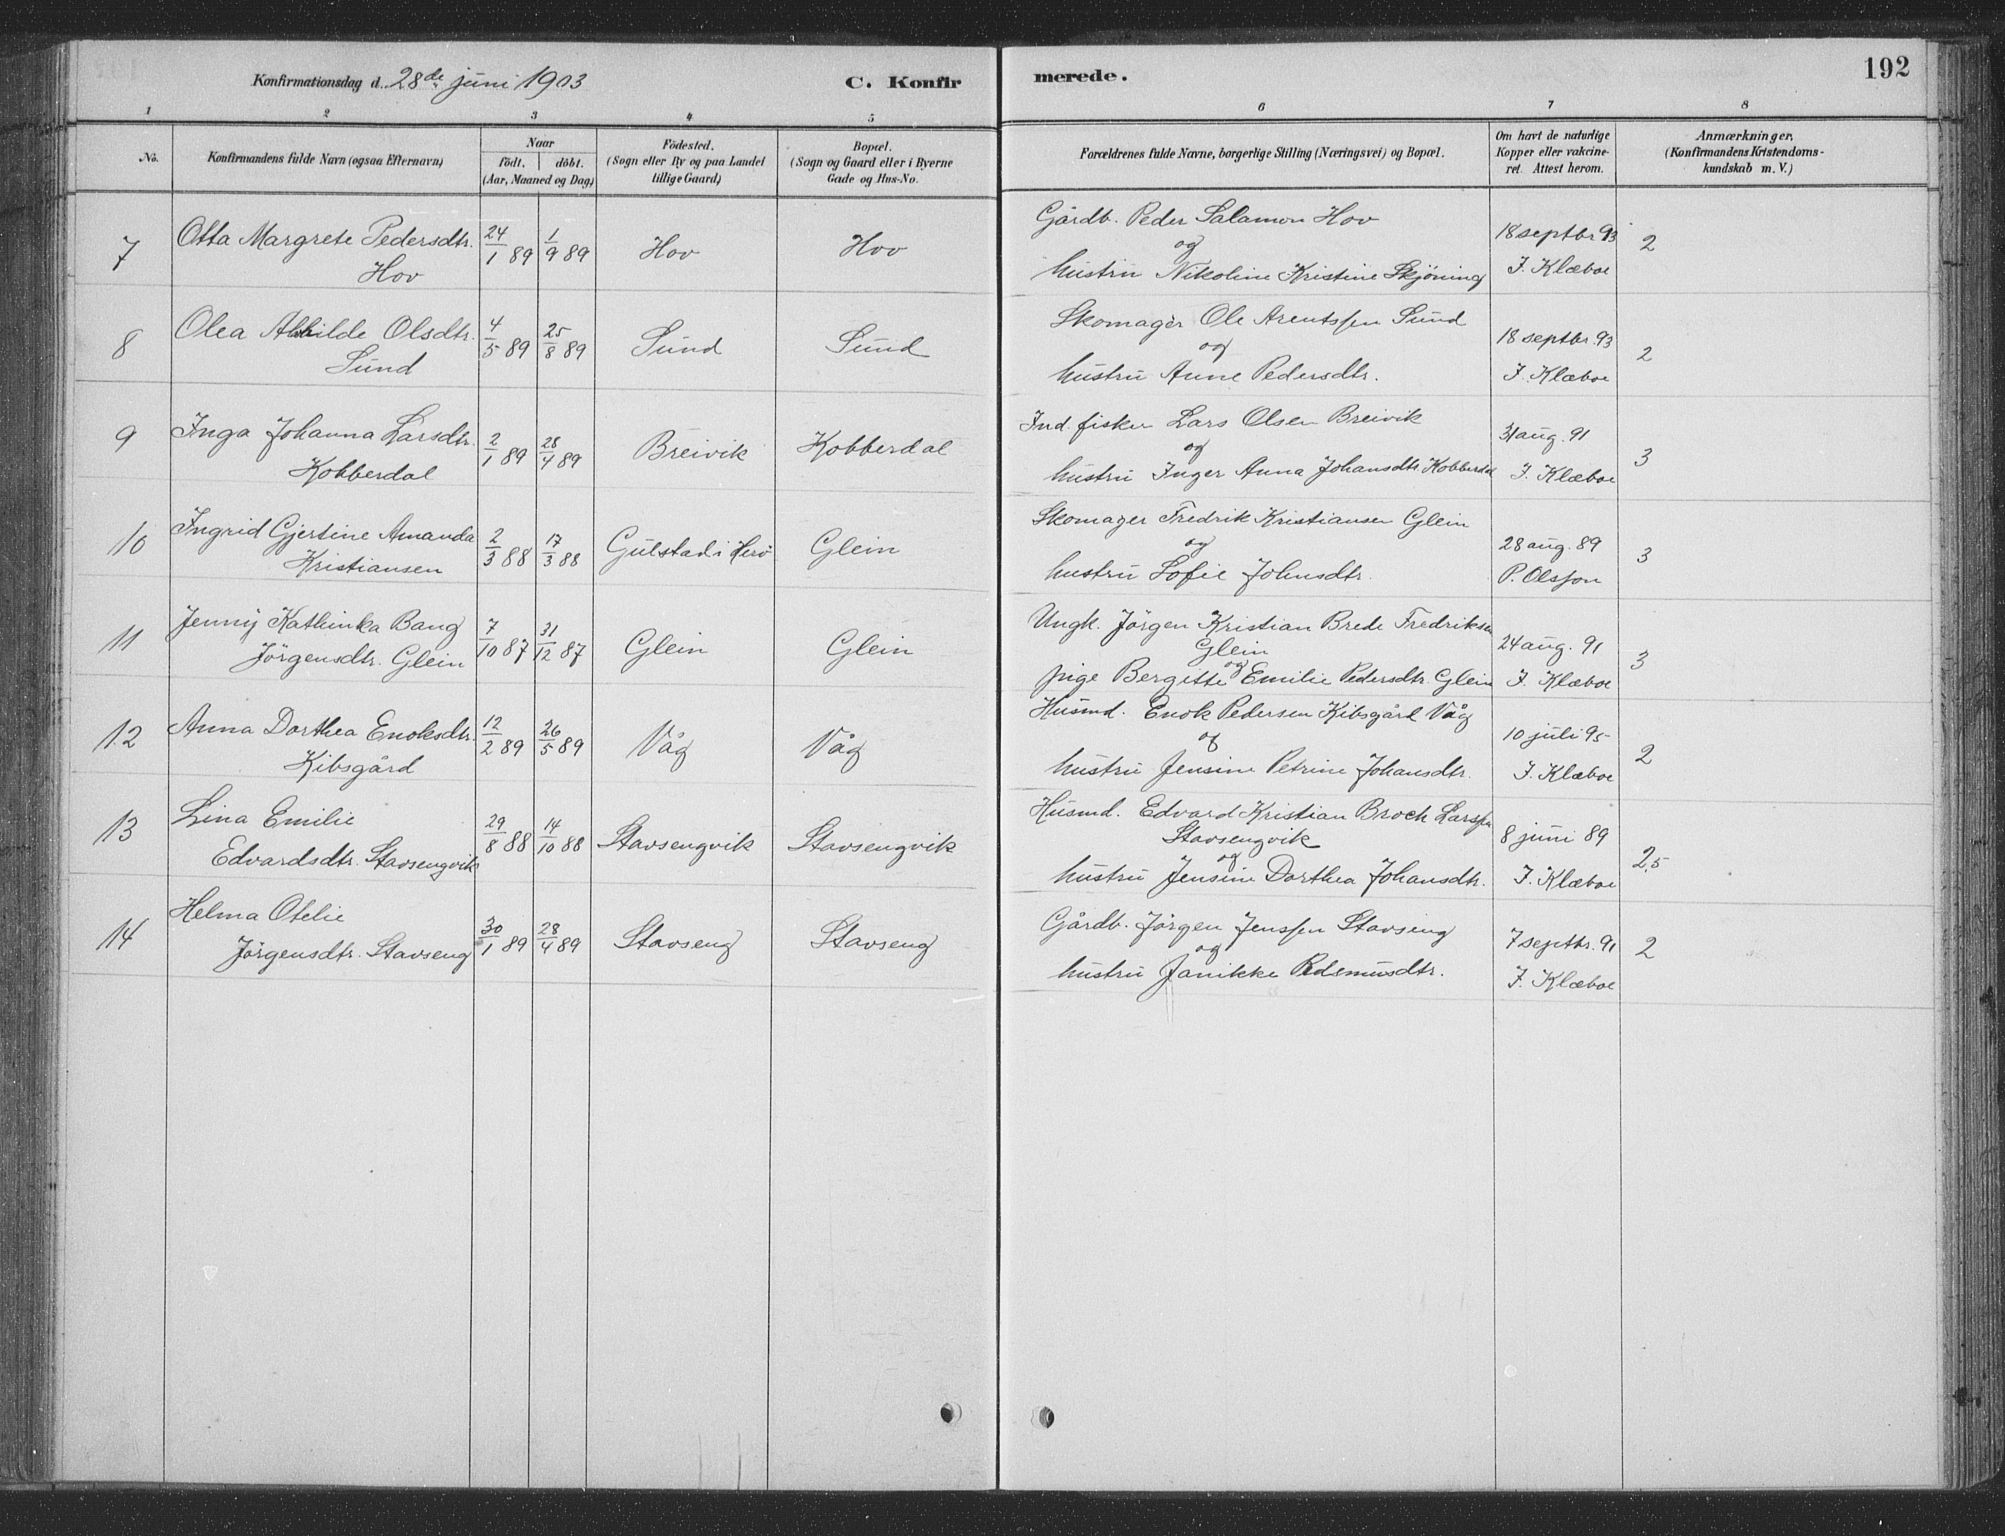 Konfirmationsdag d. 28de juni 1903
C. Konfir
merede.
192
1 2 3 4 5 6 7 8
No.
Konfirmandens fulde Navn (ogsaa Efternavn)
Naar
födt. döbt.
(Aar, Maaned og Dag.)
Födested.
(Sogn eller By og paa Landet
tillige Gaard.)
Bopæl.
(Sogn og Gaard eller i Byerne
Gade og Hus-No.
Forældrenes fulde Navne, borgerlige Stilling (Næringsvei) og Bopæl.
Om havt de naturlige
Kopper eller vakcine-
ret. Attest herom.
Anmærkninger.
(Konfirmandens Kristendoms-
kundskab m. V.)
7 Otta Margrete Pedersdtr. 24/1 89 1/9 89 Hov Hov
Hov
Gårdb. Peder Salamon Hov
og
hustru Nikoline Kristine Skjöning
18 septbr. 93
J. Klæboe
2
8 Olea Olsdtr. 4/5 89 25/8 89 Sund Sund
Sund
Skomager Ole Arentssen Sund
og
hustru Anne Pedersdtr.
18 septbr. 93
J. Klæboe
2
9 Inga Johanna Larsdtr. 2/1 89 28/4 89 Breivik Kobberdal
Kobberdal
Ind. fisker Lars Olsen Breivik
og
hustru Inger Anna Johansdtr. Kobberdal
31 aug. 91
J. Klæboe
3
10 Ingrid Gjertine Amanda 2/3 88 17/3 88 Gulstad i Herö Glein
Kristiansen
Skomager Fredrik Kristiansen Glein
og
hustru Sofie Johnsdtr.
28 aug. 89
P. Olsson
3
11 Jenny Kathinka Bang 7/10 87 31/12 87 Glein Glein
Jörgensdtr. Glein
Ungk. Jörgen Kristian Brede Fredriksen
Glein
og
pige Bergitte Emilie Pedersdtr. Glein
24 aug. 91
J. Klæboe
3
12 Anna Dorthea Enoksdtr. 12/2 89 26/5 89 Våg Våg
Kibsgård
Husmd. Enok Pedersen Kibsgård Våg
og
hustru Jensine Petrine Johansdtr.
10 juli 95
J. Klæboe
2
13 Lina Emilie 29/8 88 14/10 88 Stavsengvik Stavsengvik
Edvardsdtr. Stavsengvik
Husmd. Edvard Kristian Broch Larssen
Stavsengvik
og
hustru Jensine Dorthea Johansdtr.
8 juni 89
J. Klæboe
2,5
14 Helma Otelie 30/1 89 28/4 89 Stavseng Stavseng
Jörgensdtr. Stavseng
Gårdb. Jörgen Jenssen Stavseng
og
hustru Janikke
7 septbr. 91
J. Klæboe
2